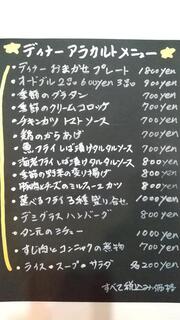 ディナーアラカルトメニュー
・ディナーおまかせプレート 1800yen
・オードブル 2コ 600yen 3コ 900
・季節のグラタン 700yen
・季節のクリームコロッケ 700yen
・チキンカツ トマトソース 700yen
・鶏のからあげ 700yen
・魚フライ しば漬けタルタルソース 700yen
・海老フライ しば漬けタルタルソース 800yen
・季節の野菜の炙り揚げ 800yen
・豚肉とチーズのミルフィーユカツ 800yen
・選べるフライ3種盛り合せ 1000yen
・デミグラスハンバーグ 800yen
・タン元のシチュー 1000yen
・すじ肉とコンニャクの煮物 700yen
・ライス・スープ・サラダ 各200yen
すべて税込み価格